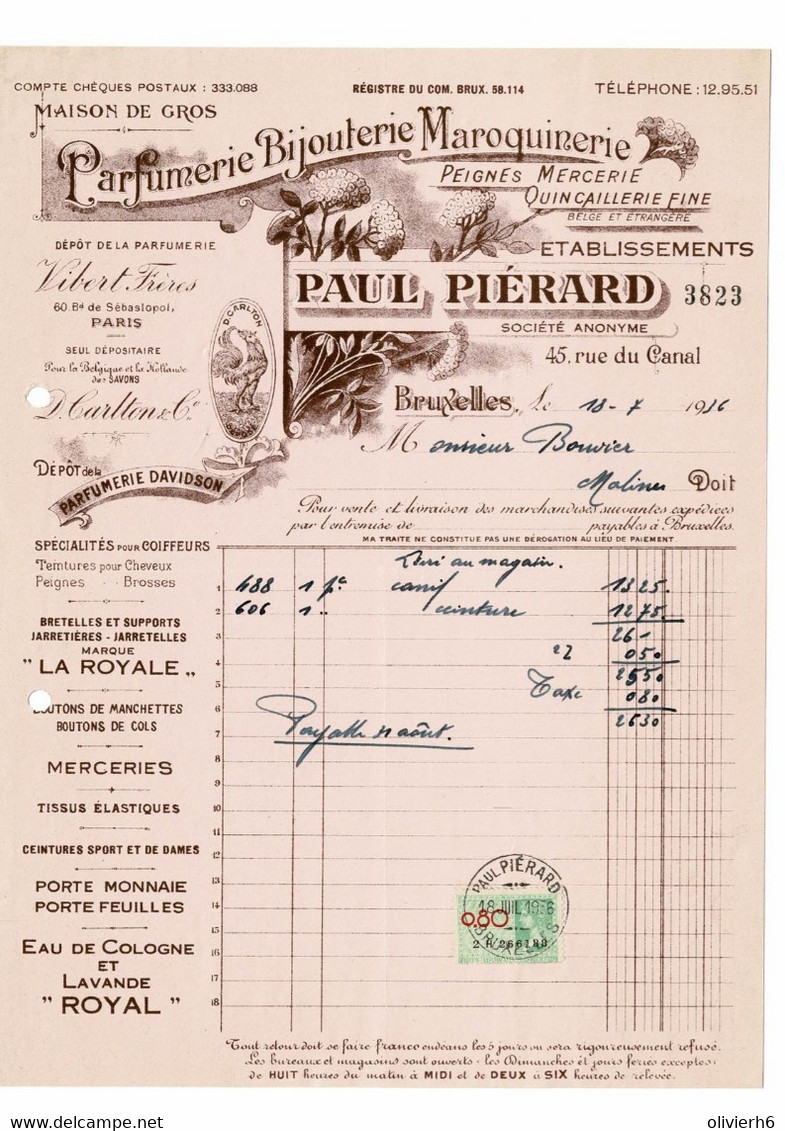 COMPTE CHÈQUES POSTAUX : 333.088
RÉGISTRE DU COM. BRUX. 58.114
TÉLÉPHONE : 12.95.51
MAISON DE GROS
Parfumerie Bijouterie Maroquinerie
PEIGNES MERCERIE
QUINCAILLERIE FINE
BELGE ET ÉTRANGÈRE
DÉPÔT DE LA PARFUMERIE
Vibert Frères
60. Bd de Sébastopol,
PARIS
ETABLISSEMENTS
PAUL PIÉRARD
3823
SOCIÉTÉ ANONYME
SEUL DÉPOSITAIRE
Pour la Belgique et la Hollande
des SAVONS
D. Carlton & Co
D. CARLTON
45, rue du Canal
Bruxelles, le 18-7 1936
M onsieur Bouvier
Malines Doit
DÉPÔT de la
PARFUMERIE DAVIDSON
Pour vente et livraison des marchandises suivantes expédiées
par l'entremise de payables à Bruxelles.
MA TRAITE NE CONSTITUE PAS UNE DÉROGATION AU LIEU DE PAIEMENT.
SPÉCIALITÉS POUR COIFFEURS
Teintures pour Cheveux
Peignes - Brosses
BRETELLES ET SUPPORTS
JARRETIÈRES - JARRETELLES
MARQUE
" LA ROYALE "
BOUTONS DE MANCHETTES
BOUTONS DE COLS
MERCERIES
TISSUS ÉLASTIQUES
CEINTURES SPORT ET DE DAMES
PORTE MONNAIE
PORTE FEUILLES
EAU DE COLOGNE
ET
LAVANDE
" ROYAL "
au magasin.
1 488 1 pce canif 13 25.
2 606 1 " ceinture 12 75.
3 26 -
4 2% 0 50
5 25 50
6 Taxe 0 80
7 Payable 31 août. 26 30
8
9
10
11
12
13
14
15
16
17
18
PAUL PIÉRARD
18 JUIL 1936
BRUXELLES
0.80
2 H 266183
Tout retour doit se faire franco endéans les 5 jours ou sera rigoureusement refusé.
Les bureaux et magasins sont ouverts : les Dimanches et jours fériés exceptés :
de HUIT heures du matin à MIDI et de DEUX à SIX heures de relevée.
delcampe.net
olivierh6